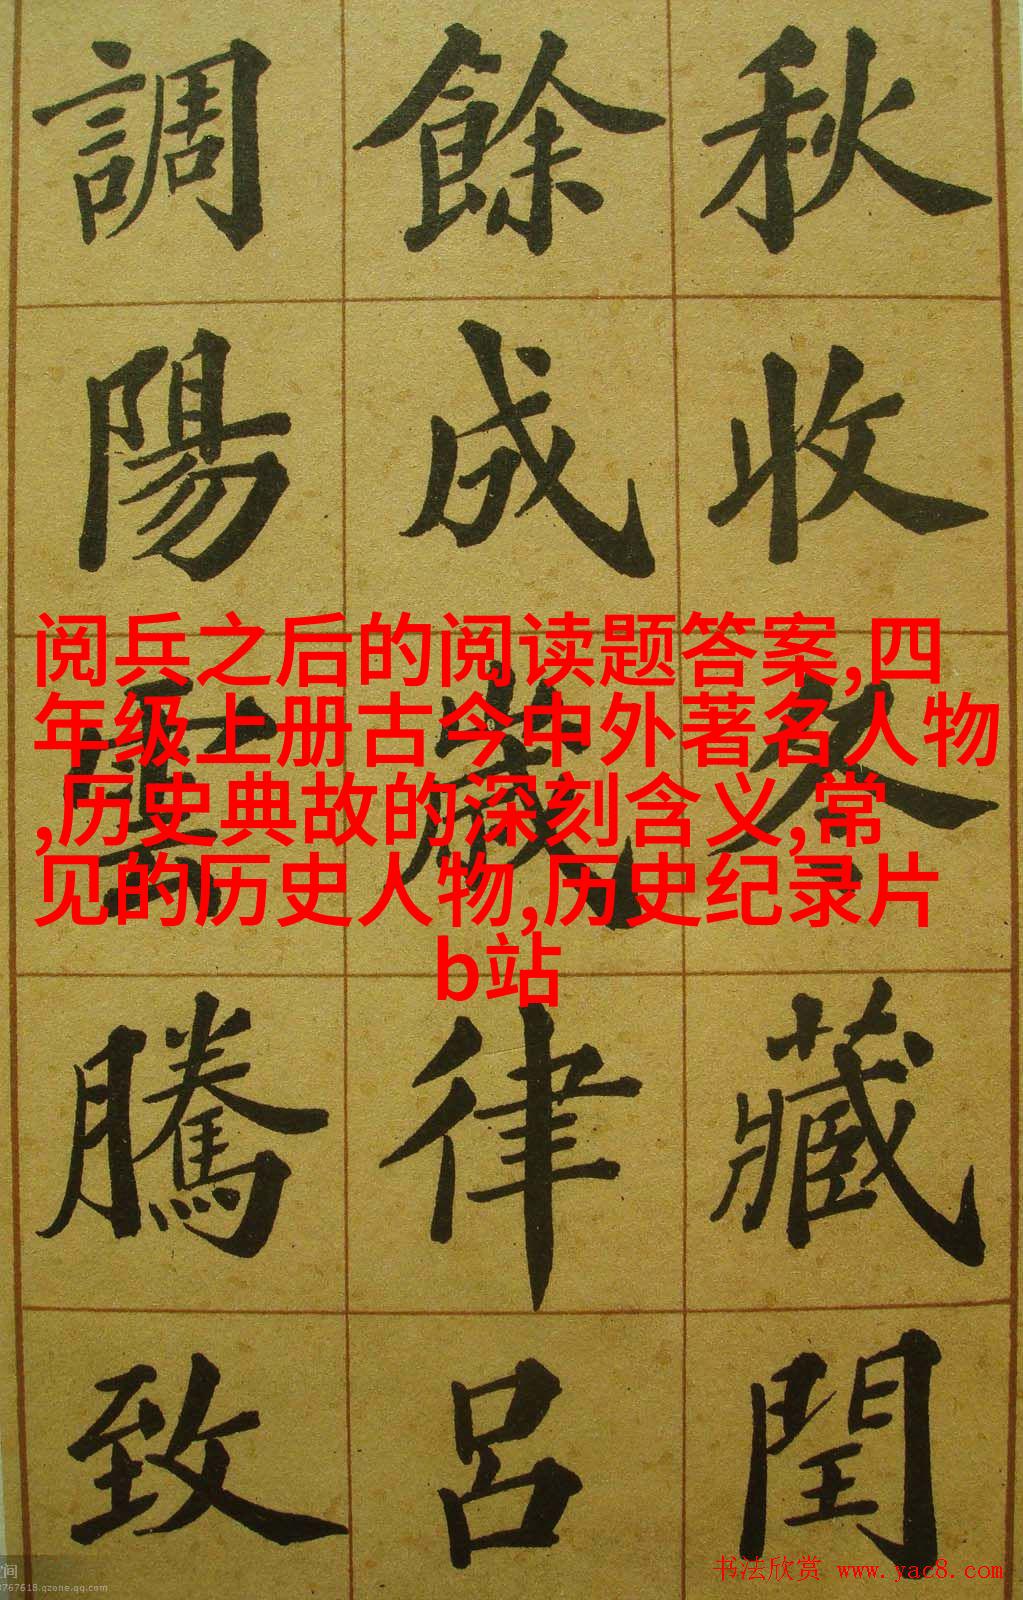 秋收冬藏閏
餘成歲律呂
調陽雲騰致
阅兵之后的阅读题答案,四
年级上册古今中外著名人物
,历史典故的深刻含义,常
见的历史人物,历史纪录片
b站
书法欣赏 www.yac8.com
间
3767618.qzone.qq.com